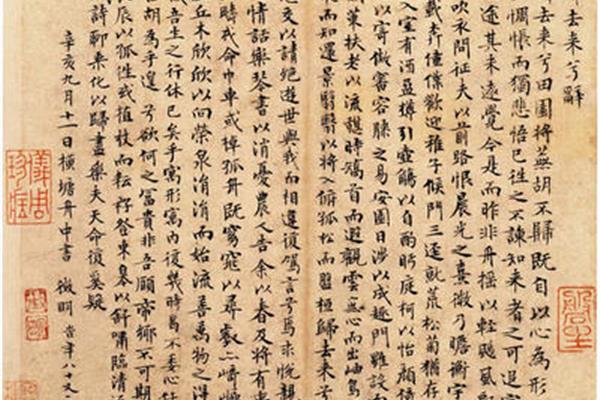 去来兮辭
去来兮田園将蕪胡不歸既自以心為形
惆悵而獨悲悟已往之不諫知来者之可追寔
途其未遠覺今是而昨非舟摇以輕颺風飄
吹衣問征夫以前路恨晨光之熹微乃瞻衡宇
載奔僮僕歡迎稚子候門三逕就荒松菊猶存
入室有酒盈樽引壺觴以自酌眄庭柯以怡顔倚
以寄傲審容膝之易安園日涉以成趣門雖設而
策扶老以流憩時矯首而遐觀雲無心而出岫鳥
而知還景翳翳以将入撫孤松而盤桓歸去来兮
交以請絶遊世與我而相遺復駕言兮焉求悦親
情話樂琴書以消憂農人告余以春及将有事
疇或命巾車或棹孤舟既窈窕以尋壑亦崎嶇
丘木欣欣以向榮泉涓涓而始流善萬物之得
吾生之行休已矣乎寓形寓内復幾時曷不委心任
胡為乎遑遑兮欲何之富貴非吾願帝鄉不可期
良辰以孤往或植杖而耘耔登東皋以舒嘯臨清流
詩聊乘化以歸盡樂夫天命復奚疑
辛亥九月十一日横塘舟中書 徵明 時年八十又二